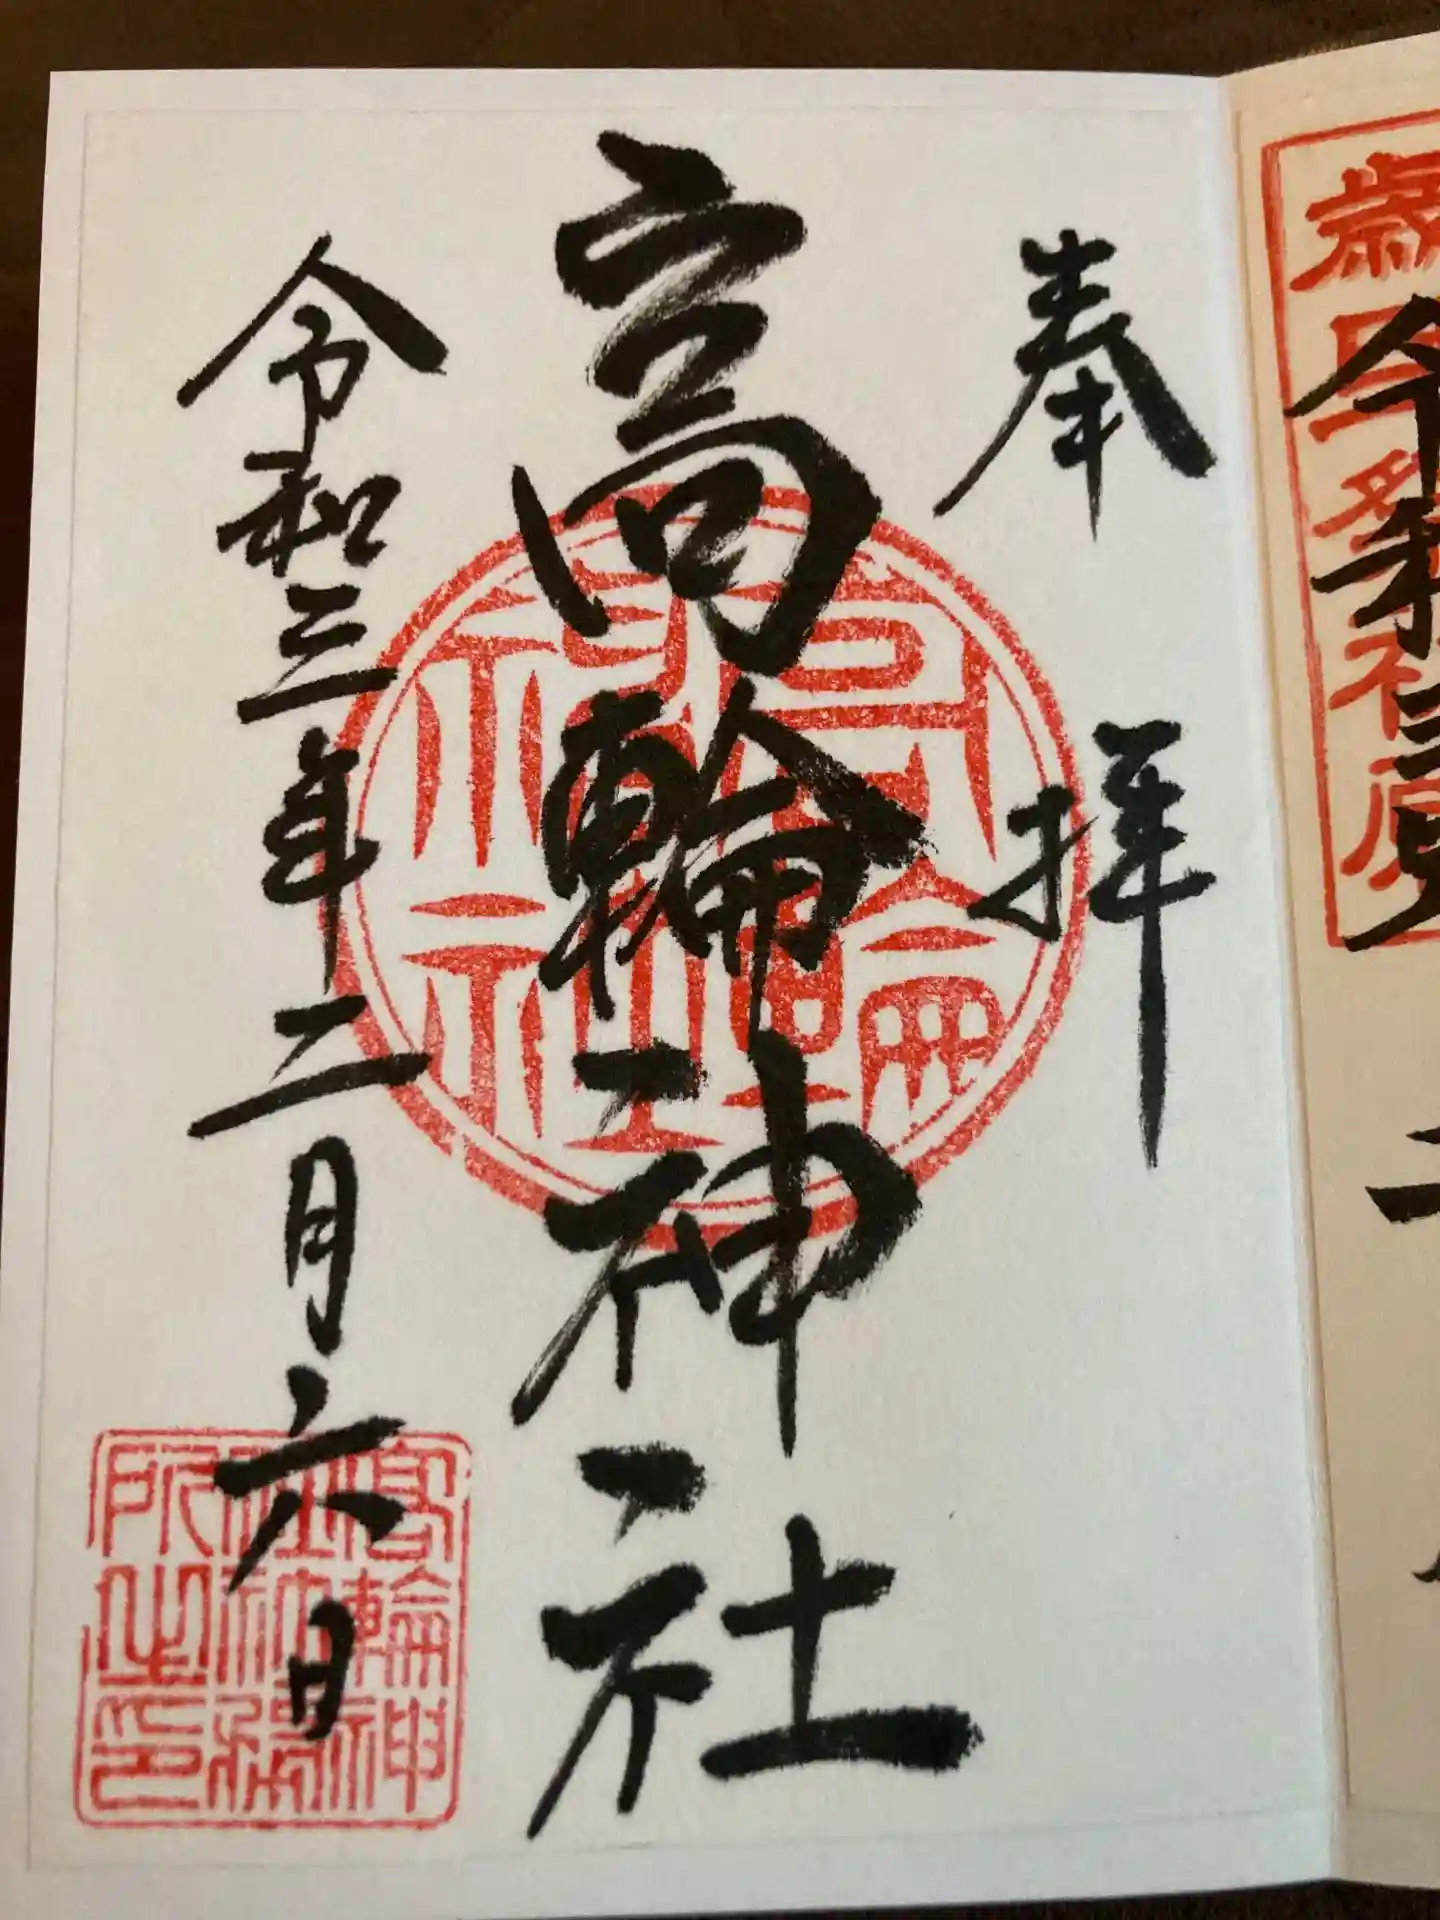 奉拝
高輪神社
令和三年二月六日
高輪神
社社務
所之印
高輪
神社